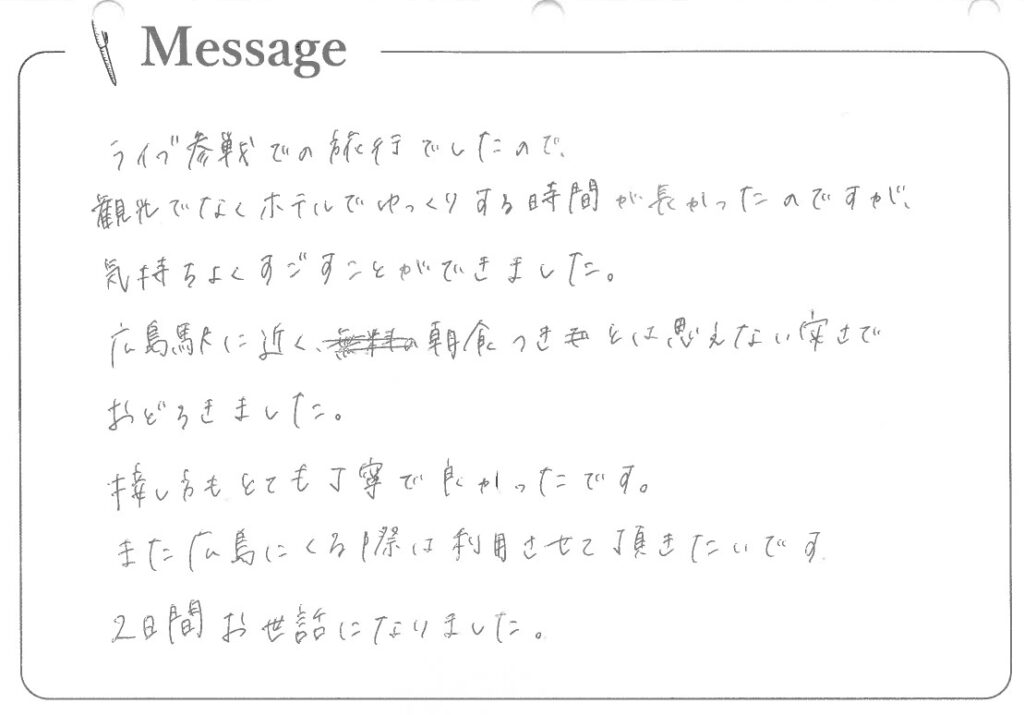 Message
ライブ参戦での旅行でしたので、
観光でなくホテルでゆっくりする時間が長かったのですが、
気持ちよくすごすことができました。
広島駅に近く、無料の朝食つきもとは思えない安さで
おどろきました。
接し方もとても丁寧で良かったです。
また広島にくる際は利用させて頂きたいです
2日間お世話になりました。